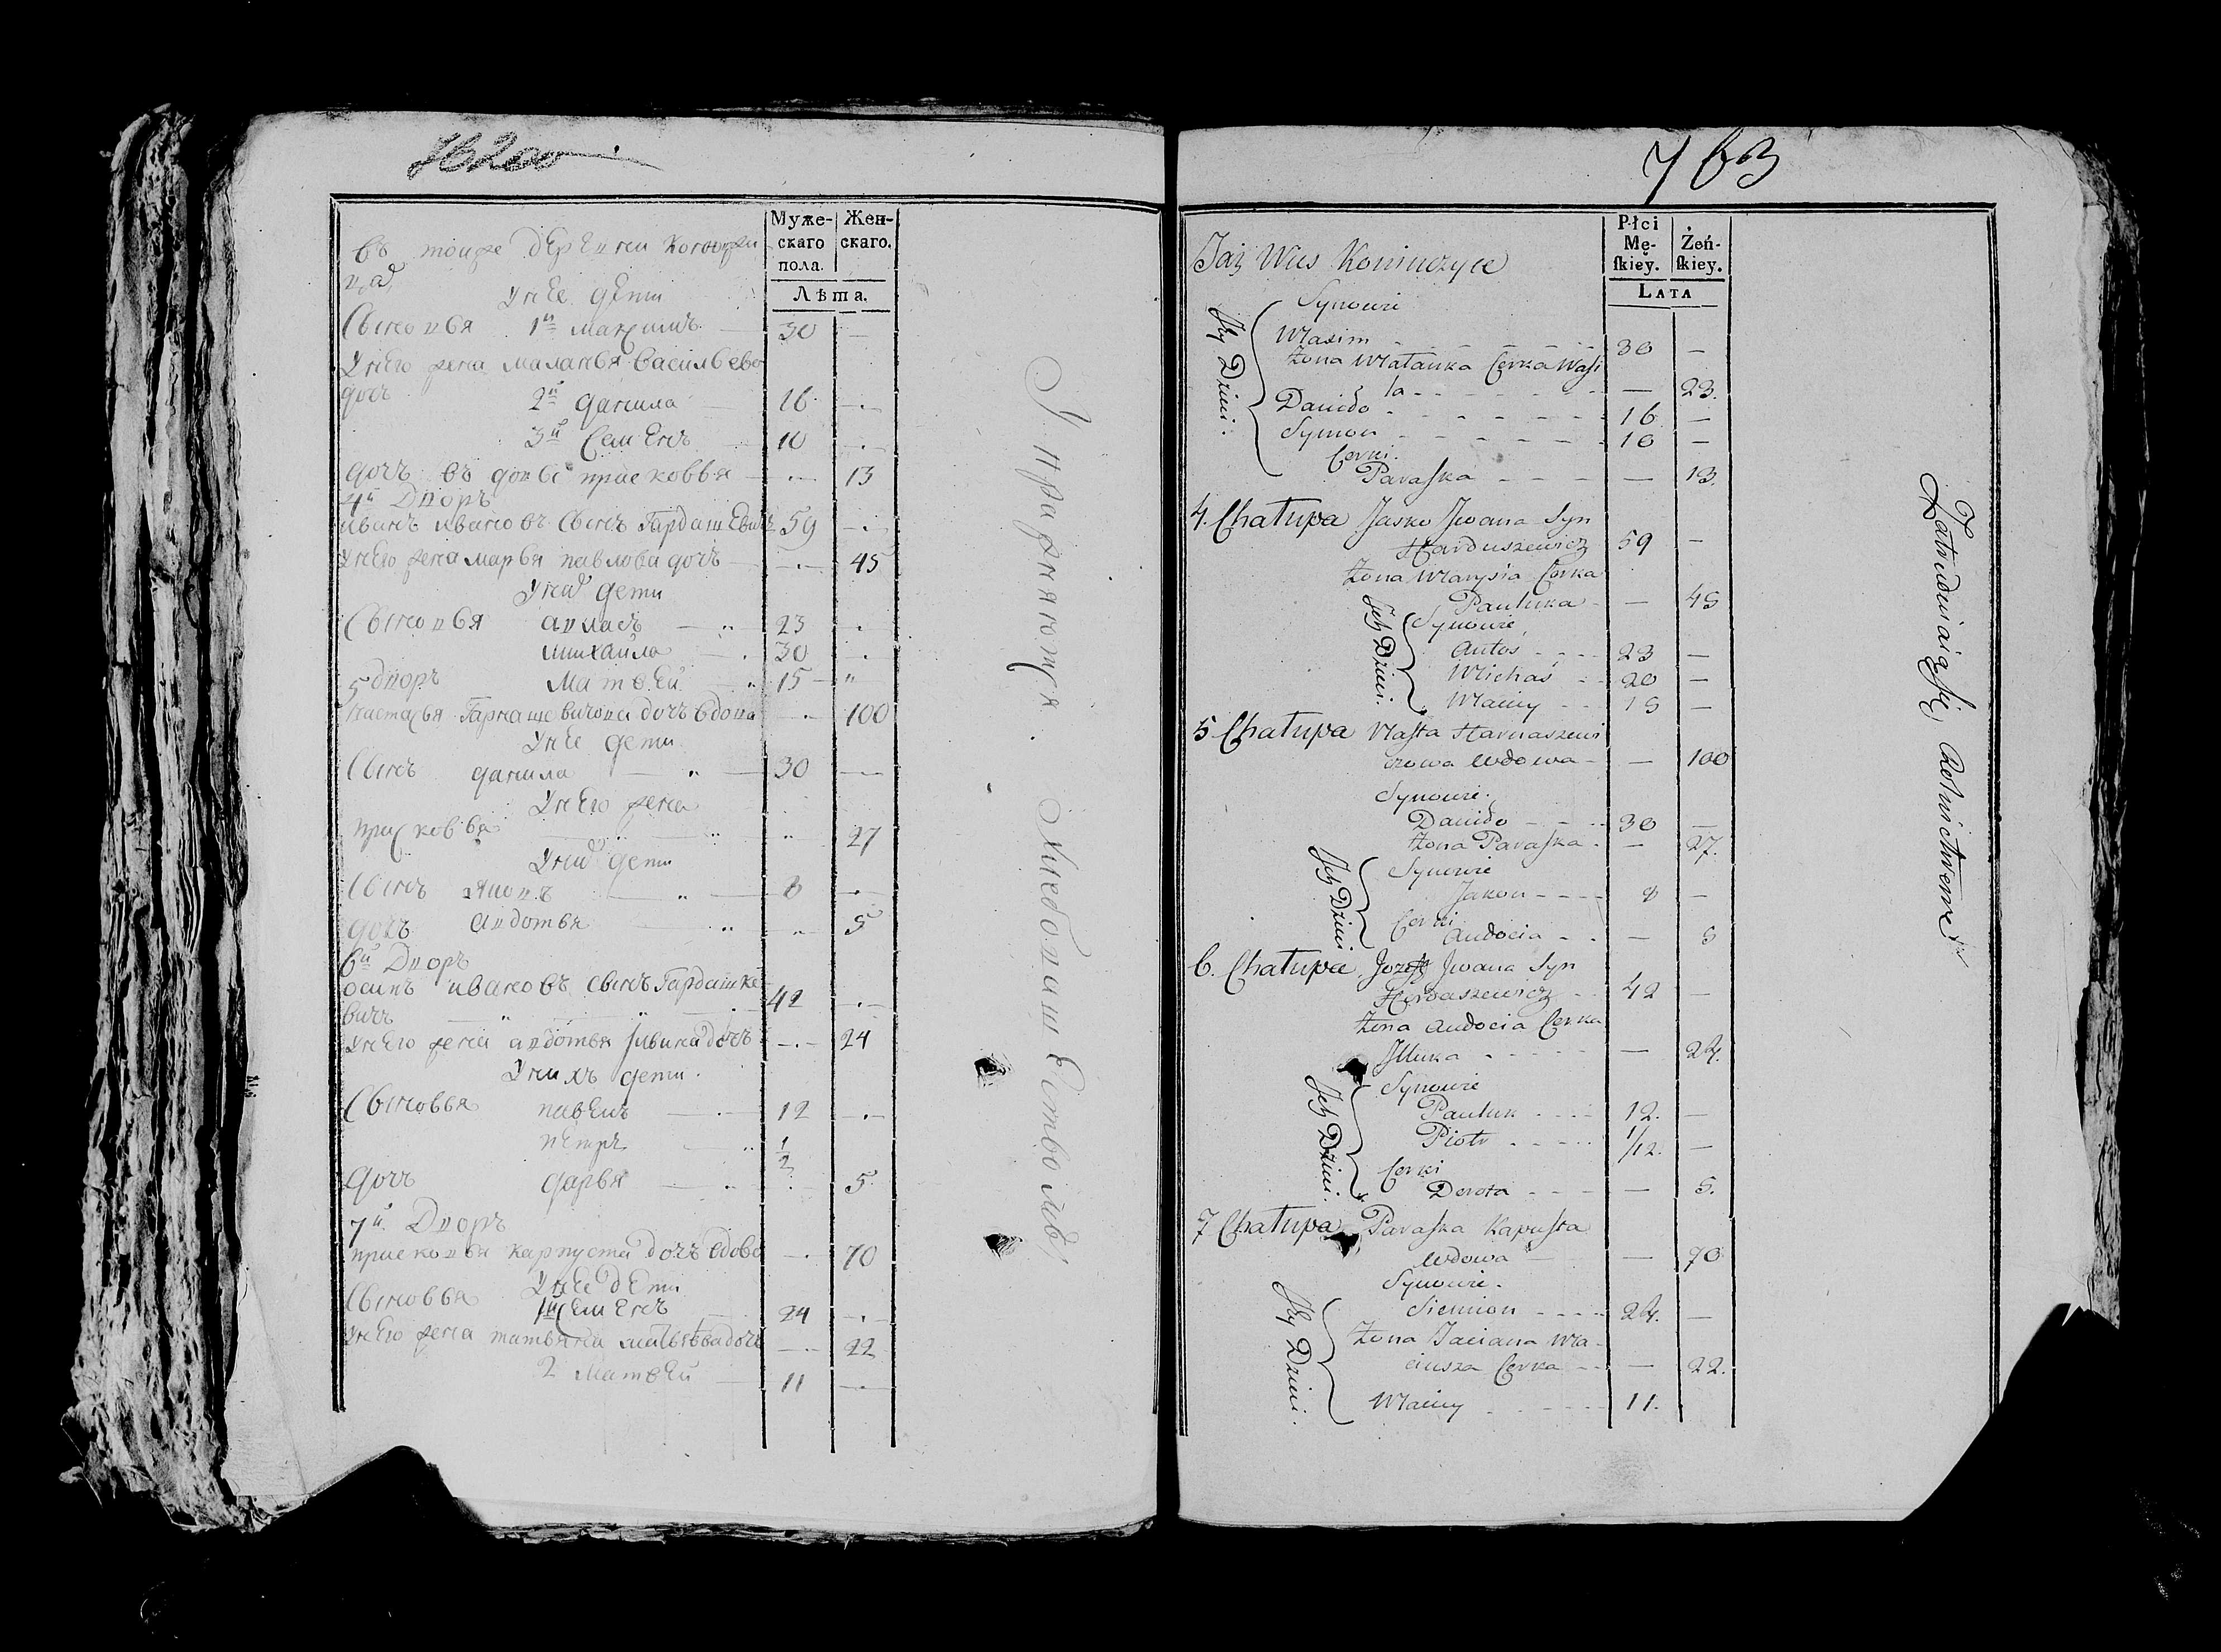 Муже-
скаго
пола.
Жен-
скаго.
Лѣта.
въ тойже деревни
У нее дети
Сыновья 1й Максимъ — 30 —
У него жена Маланья Васильева
дочь
2й Данила — 16 —
3й Семенъ 10 —
дочь въ Прасковья — — 13
4й Дворъ
Иванъ Ивановъ сынъ Гардашевичъ 59 —
У него жена Марья Павлова дочь — — 45
У них дети
Сыновья 23 —
Михайла — 30 —
5 Дворъ Матвей 15 — "
Настасья Гарнашевичова дочь вдова — 100
У нее дети
Сынъ Данила — " — 30 —
У него жена
Прасковья " 27
У них дети
Сынъ Яковъ — " — 8 —
дочь Авдотья " " 5
6й Дворъ
Осипъ Ивановъ сынъ Гардашке-
вичъ " " 42 —
У него жена Авдотья дочь — 24
У нихъ дети
Сыновья Павелъ — 12 —
Петръ 1/2
Дочь Дарья — " 5
7й Дворъ
Прасковья Карпуста дочь вдова — 70
У нее дети
Сыновья 1й Семенъ 24 —
У него жена Татьяна Матвѣева дочь — 22
2 Матвей — 11 —
Упражняются Хлебопашествомъ
763
Płci
Mę-
skiey.
Żeń-
skiey.
LATA
Taż Wieś Koniuczyce
Synowie
Jey Dzieci.
Maxim 30 —
Żona Małanka Corka Wasi
la — 23.
Daniło 16 —
Symon 10 —
Corki.
Paraska — 13.
4. Chałupa Jasko Jwana Syn
Harduszewicz 59 —
Żona Marysia Corka
Pauluka — 45
Jch Dzieci.
Synowie
Antos 23 —
Michaś 20 —
Maciey 15 —
5 Chałupa Nasta Harnaszewi
czowa Wdowa — 100
Synowie.
Daniło 30 —
Żona Paraska — 27.
Jch Dzieci
Synowie
Jakow 8 —
Corki
Audocia — 5
6. Chałupa Jozef Jwana Syn
Hordaszewicz 42 —
Żona Audocia Corka
— 24.
Jch Dzieci.
Synowie
Pauluk 12. —
Piotr 1/12. —
Corki
Dorota — 5.
7 Chałupa Paraska Kapusta
Wdowa — 70
Synowie.
Jey Dzieci.
Siemion 24. —
Żona Taciana Ma-
ciusza Corka — 22.
Maciey 11.
Zatrudniaią się Rolnictwem